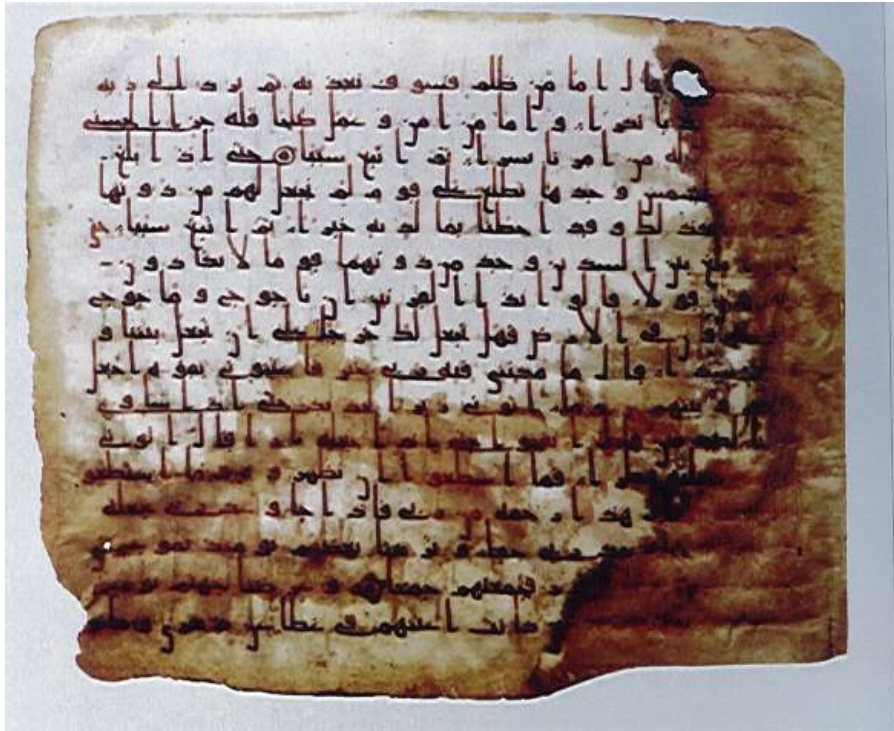 قال اما من ظلم فسوف نعذبه ثم يرد الى ربه
نكرا واما من امن وعمل صلحا فله جزا الحسنى
له من امرنا يسرا ثم اتبع سببا حتى اذا بلغ
الشمس وجدها تطلع على قوم لم نجعل لهم من دونها
كذلك وقد احطنا بما لديه خبرا ثم اتبع سببا حتى
بلغ بين السدين وجد من دونهما قوما لا يكادون
يفقهون قولا قالوا يذا القرنين ان ياجوج وماجوج
في الارض فهل نجعل لك خرجا على ان تجعل بيننا و
قال ما مكني فيه ربي خير فاعينوني بقوة اجعل
وبينهم ردما اتوني زبر الحديد حتى اذا ساوى
قال انفخوا حتى اذا جعله نارا قال اتوني
عليه قطرا فما اسطعوا ان يظهروه وما استطعوا
هذا رحمة من ربي فاذا جا وعد ربي جعله
ربي حقا وتركنا بعضهم يومئذ يموج في
فجمعنهم جمعا وعرضنا جهنم يومئذ
كانت اعينهم في غطا عن ذكري وكانوا